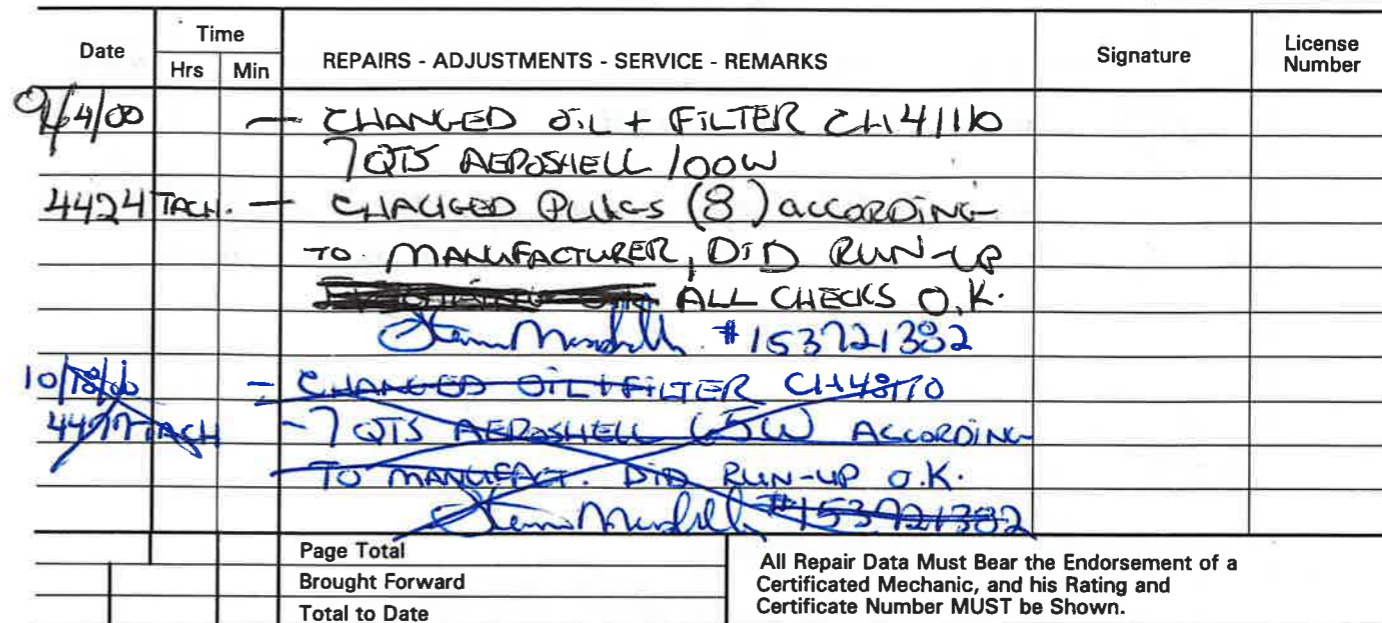 Date Time REPAIRS - ADJUSTMENTS - SERVICE - REMARKS Signature License Number
Hrs Min
9/4/00 — CHANGED OIL + FILTER CH4110
7 QTS AEROSHELL 100W
4424 TACH. — CHANGED PLUGS (8) ACCORDING
TO MANUFACTURER, DID RUN-UP
ALL CHECKS O.K.
#153721382
10/18/00 - CHANGED OIL + FILTER CH48110
4477 TACH - 7 QTS AEROSHELL 65W ACCORDING
TO MANUFACT. DID RUN-UP O.K.
#153721382
Page Total
Brought Forward
Total to Date
All Repair Data Must Bear the Endorsement of a
Certificated Mechanic, and his Rating and
Certificate Number MUST be Shown.